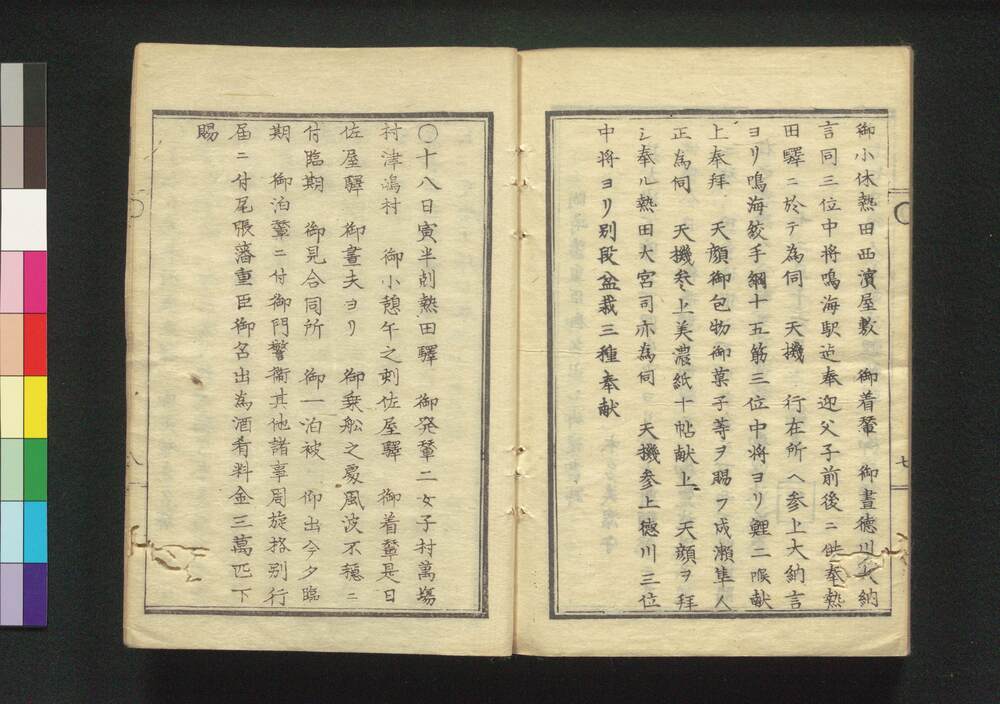 御小休熱田西濱屋敷 御着輦 御晝徳川大納
言同三位中将鳴海駅迠奉迎父子前後ニ供奉熱
田驛ニ於テ為伺 天機 行在所ヘ参上大納言
ヨリ鳴海絞手綱十五筋三位中将ヨリ鯉二喉献
上奉拜 天顔御包物御菓子等ヲ賜フ成瀬隼人
正為伺 天機参上美濃紙十帖献上 天顔ヲ拜
シ奉ル熱田大宮司亦為伺 天機参上徳川三位
中将ヨリ別段盆栽三種奉献
七
〇十八日寅半刻熱田驛 御発輦二女子村萬塲
村津嶋村 御小憩午之刺佐屋驛 御着輦是日
佐屋驛 御晝夫ヨリ 御乗舩之処風波不穏ニ
付臨期 御見合同所 御一泊被 仰出今夕臨
期 御泊輦ニ付御門警衛其他諸事周旋格別行
届ニ付尾張藩重臣御名出為酒肴料金三萬匹下
賜
八